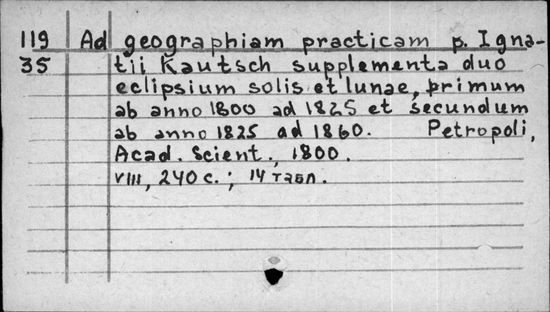 119 Ad geographiam practicam p. Igna-
35 tii Kautsch supplementa duo
eclipsium solis et lunae, primum
ab anno 1800 ad 1825 et secundum
ab anno 1825 ad 1860. Petropoli,
Acad. Scient., 1800.
VIII, 240 с.; 14 табл.